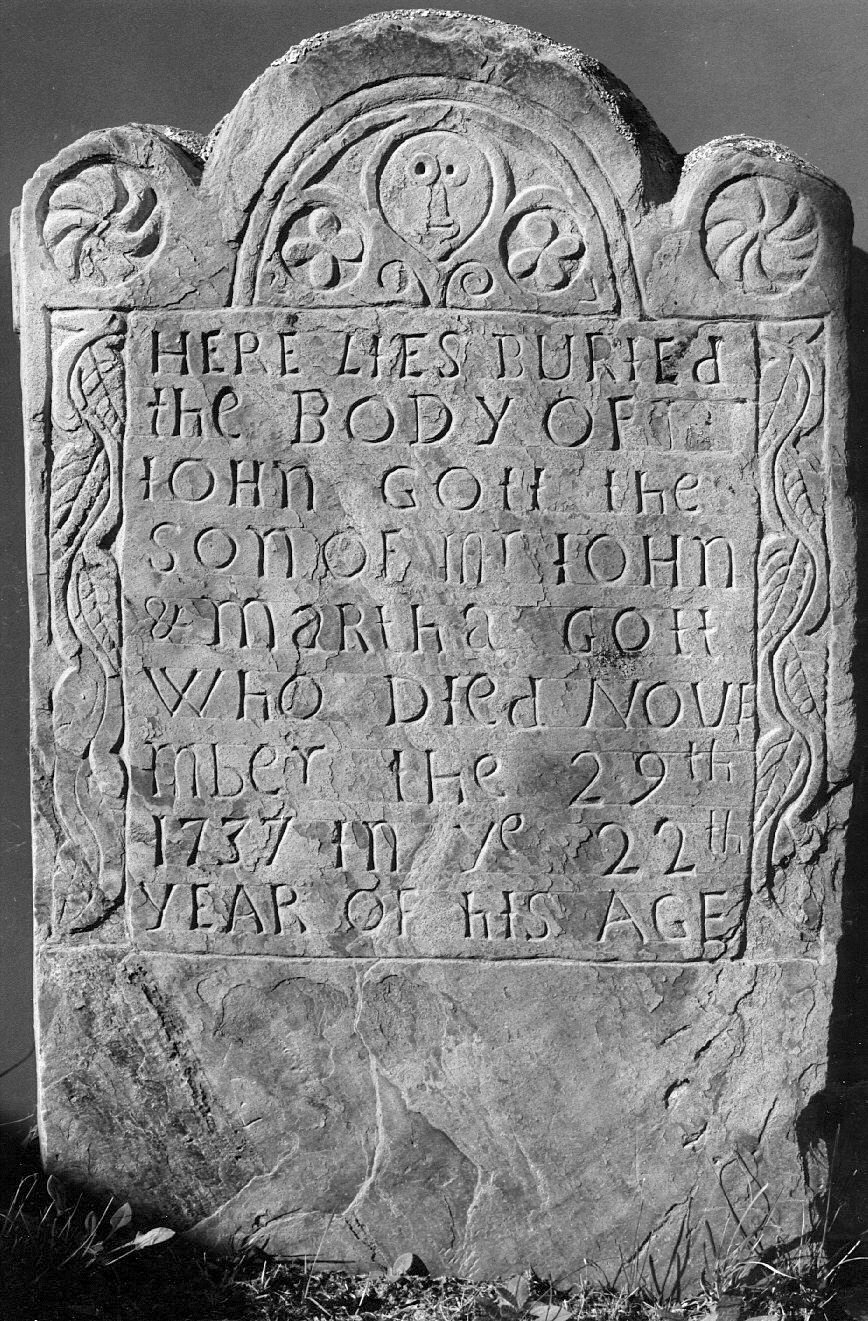 HERE LIES BURIEd
tHe BODY OF
IOHN GOtt tHe
SON OF Mr IOHN
& MARtHa GOtt
WHO DIed NOVE
mber tHe 29th
1737 IN Ye 22th
YEAR OF HIS AGE